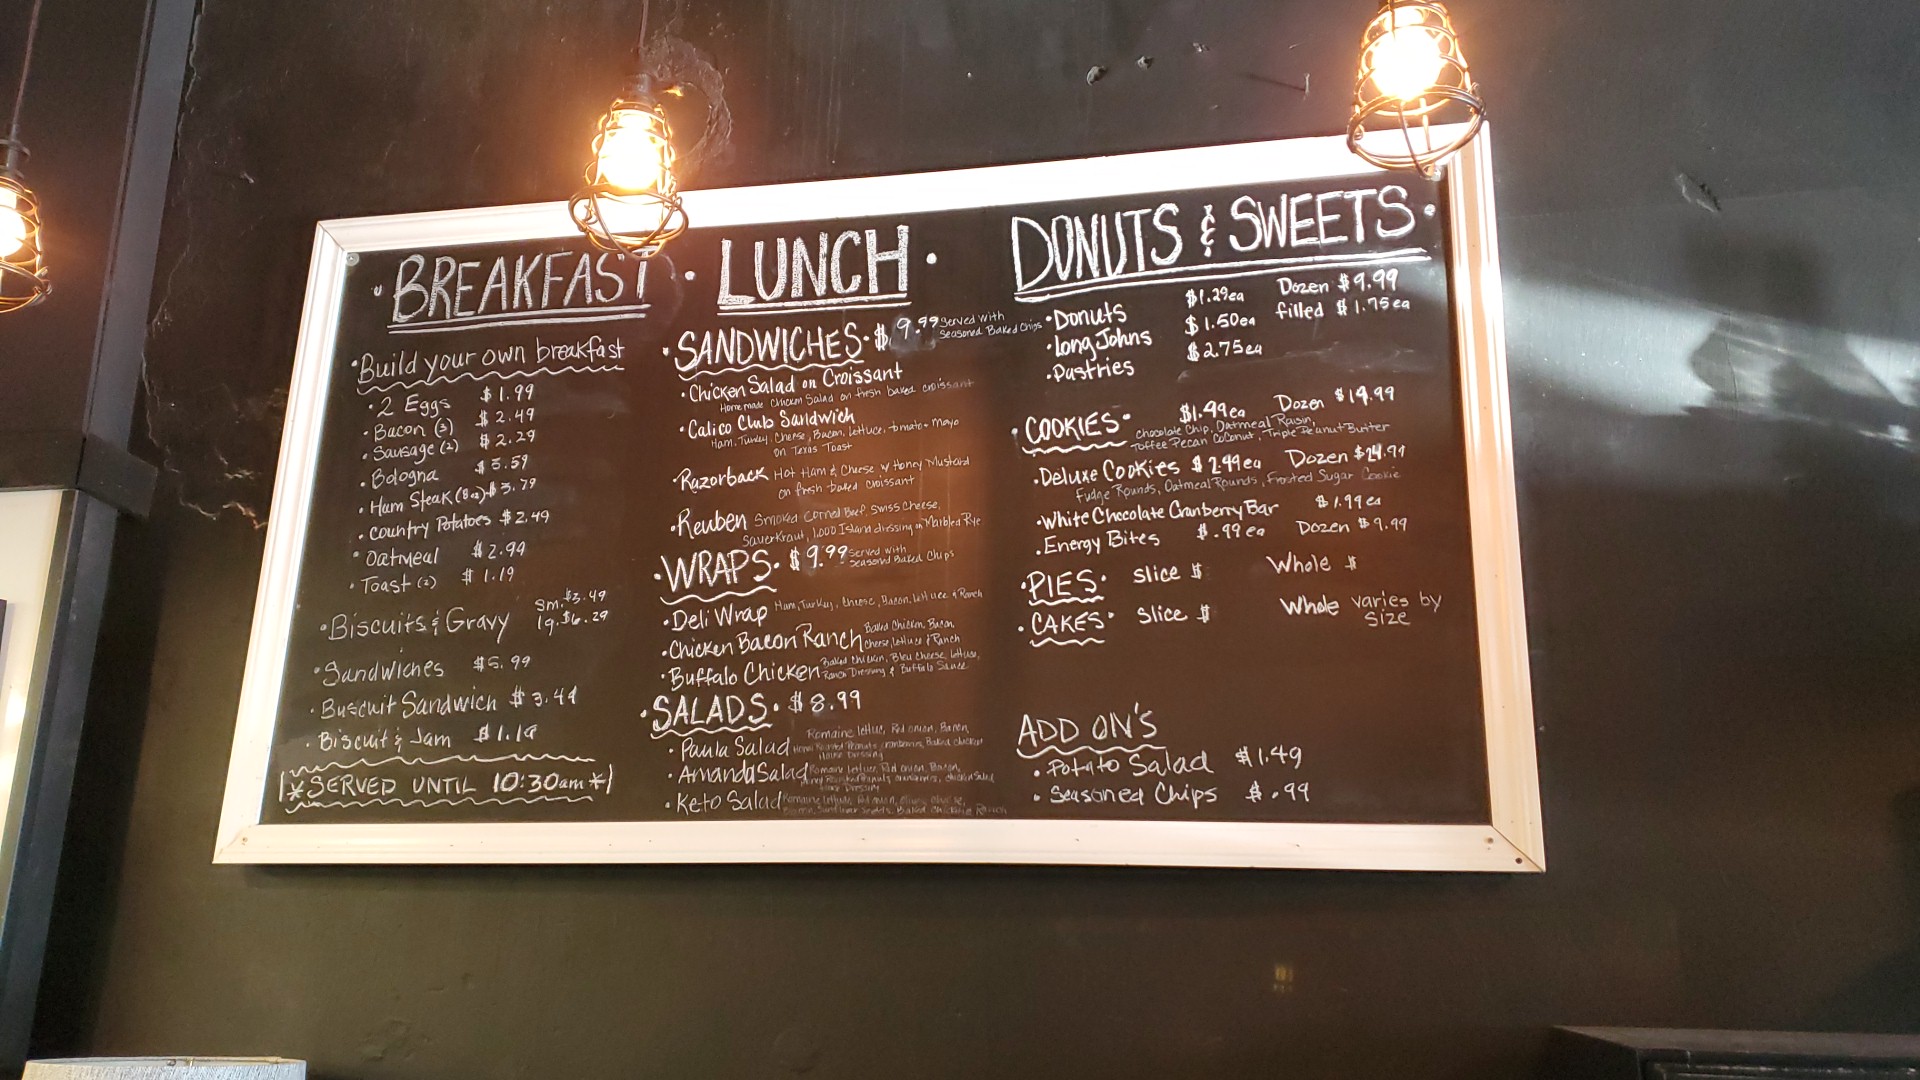 BREAKFAST
• Build your own breakfast
• 2 Eggs $1.99
• Bacon (3) $2.49
• Sausage (2) $2.29
• Bologna $3.59
• Ham Steak (8oz) $3.79
• Country Potatoes $2.49
• Oatmeal $2.99
• Toast (2) $1.19
• Biscuits & Gravy sm. $3.49
lg. $6.29
• Sandwiches $5.99
• Buscuit Sandwich $3.49
• Biscuit & Jam $1.19
*SERVED UNTIL 10:30am*
• LUNCH •
• SANDWICHES • $9.99 Served with
Seasoned Baked Chips
• Chicken Salad on Croissant
Homemade Chicken Salad on fresh baked croissant
• Calico Club Sandwich
Ham, Turkey, Cheese, Bacon, Lettuce, tomato + Mayo
on Texas Toast
• Razorback Hot Ham & Cheese w/ Honey Mustard
on fresh baked croissant
• Reuben Smoked Corned Beef, Swiss Cheese,
SauerKraut, 1,000 Island dressing on Marbled Rye
• WRAPS • $9.99 Served with
Seasoned Baked Chips
• Deli Wrap Ham, Turkey, Cheese, Bacon, Lettuce & Ranch
• Chicken Bacon Ranch Baked Chicken, Bacon,
Cheese, Lettuce & Ranch
• Buffalo Chicken Baked Chicken, Bleu Cheese, Lettuce,
Ranch Dressing & Buffalo Sauce
• SALADS • $8.99
• Paula Salad Romaine lettuce, Red onion, Bacon,
Honey Roasted Peanuts, cranberries, Baked chicken
Dressing
• Amanda Salad Romaine lettuce, Red onion, Bacon,
Honey Roasted Peanuts, cranberries, chicken Salad
Dressing
• Keto Salad Romaine lettuce, Red onion, Olives, cheese,
Baked Chicken Ranch
DONUTS & SWEETS •
• Donuts $1.29ea Dozen $9.99
• Long Johns $1.50ea filled $1.75ea
• Pastries $2.75ea
• COOKIES • $1.49ea Dozen $14.99
Chocolate Chip, Oatmeal Raisin,
Toffee Pecan Coconut, Triple Peanut Butter
• Deluxe Cookies $2.49ea Dozen $24.99
Fudge Rounds, Oatmeal Rounds, Frosted Sugar Cookie
• White Chocolate Cranberry Bar $1.99ea
• Energy Bites $.99ea Dozen $9.99
• PIES • Slice $ Whole $
• CAKES • Slice $ Whole varies by
Size
ADD ON'S
• Potato Salad $1.49
• Seasoned Chips $.99